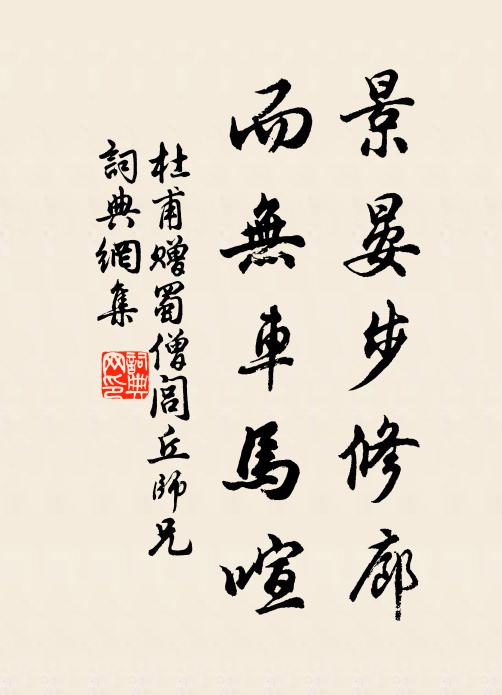 景晏步修廊
而無車馬喧
杜甫贈蜀僧閭丘師兄
詞典網集
詞典網印